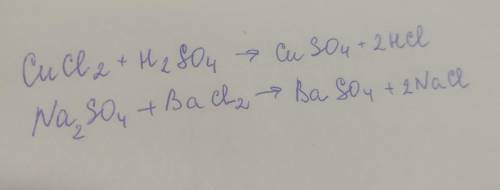 CuCl₂ + H₂SO₄ → CuSO₄ + 2HCl
Na₂SO₄ + BaCl₂ → BaSO₄ + 2NaCl